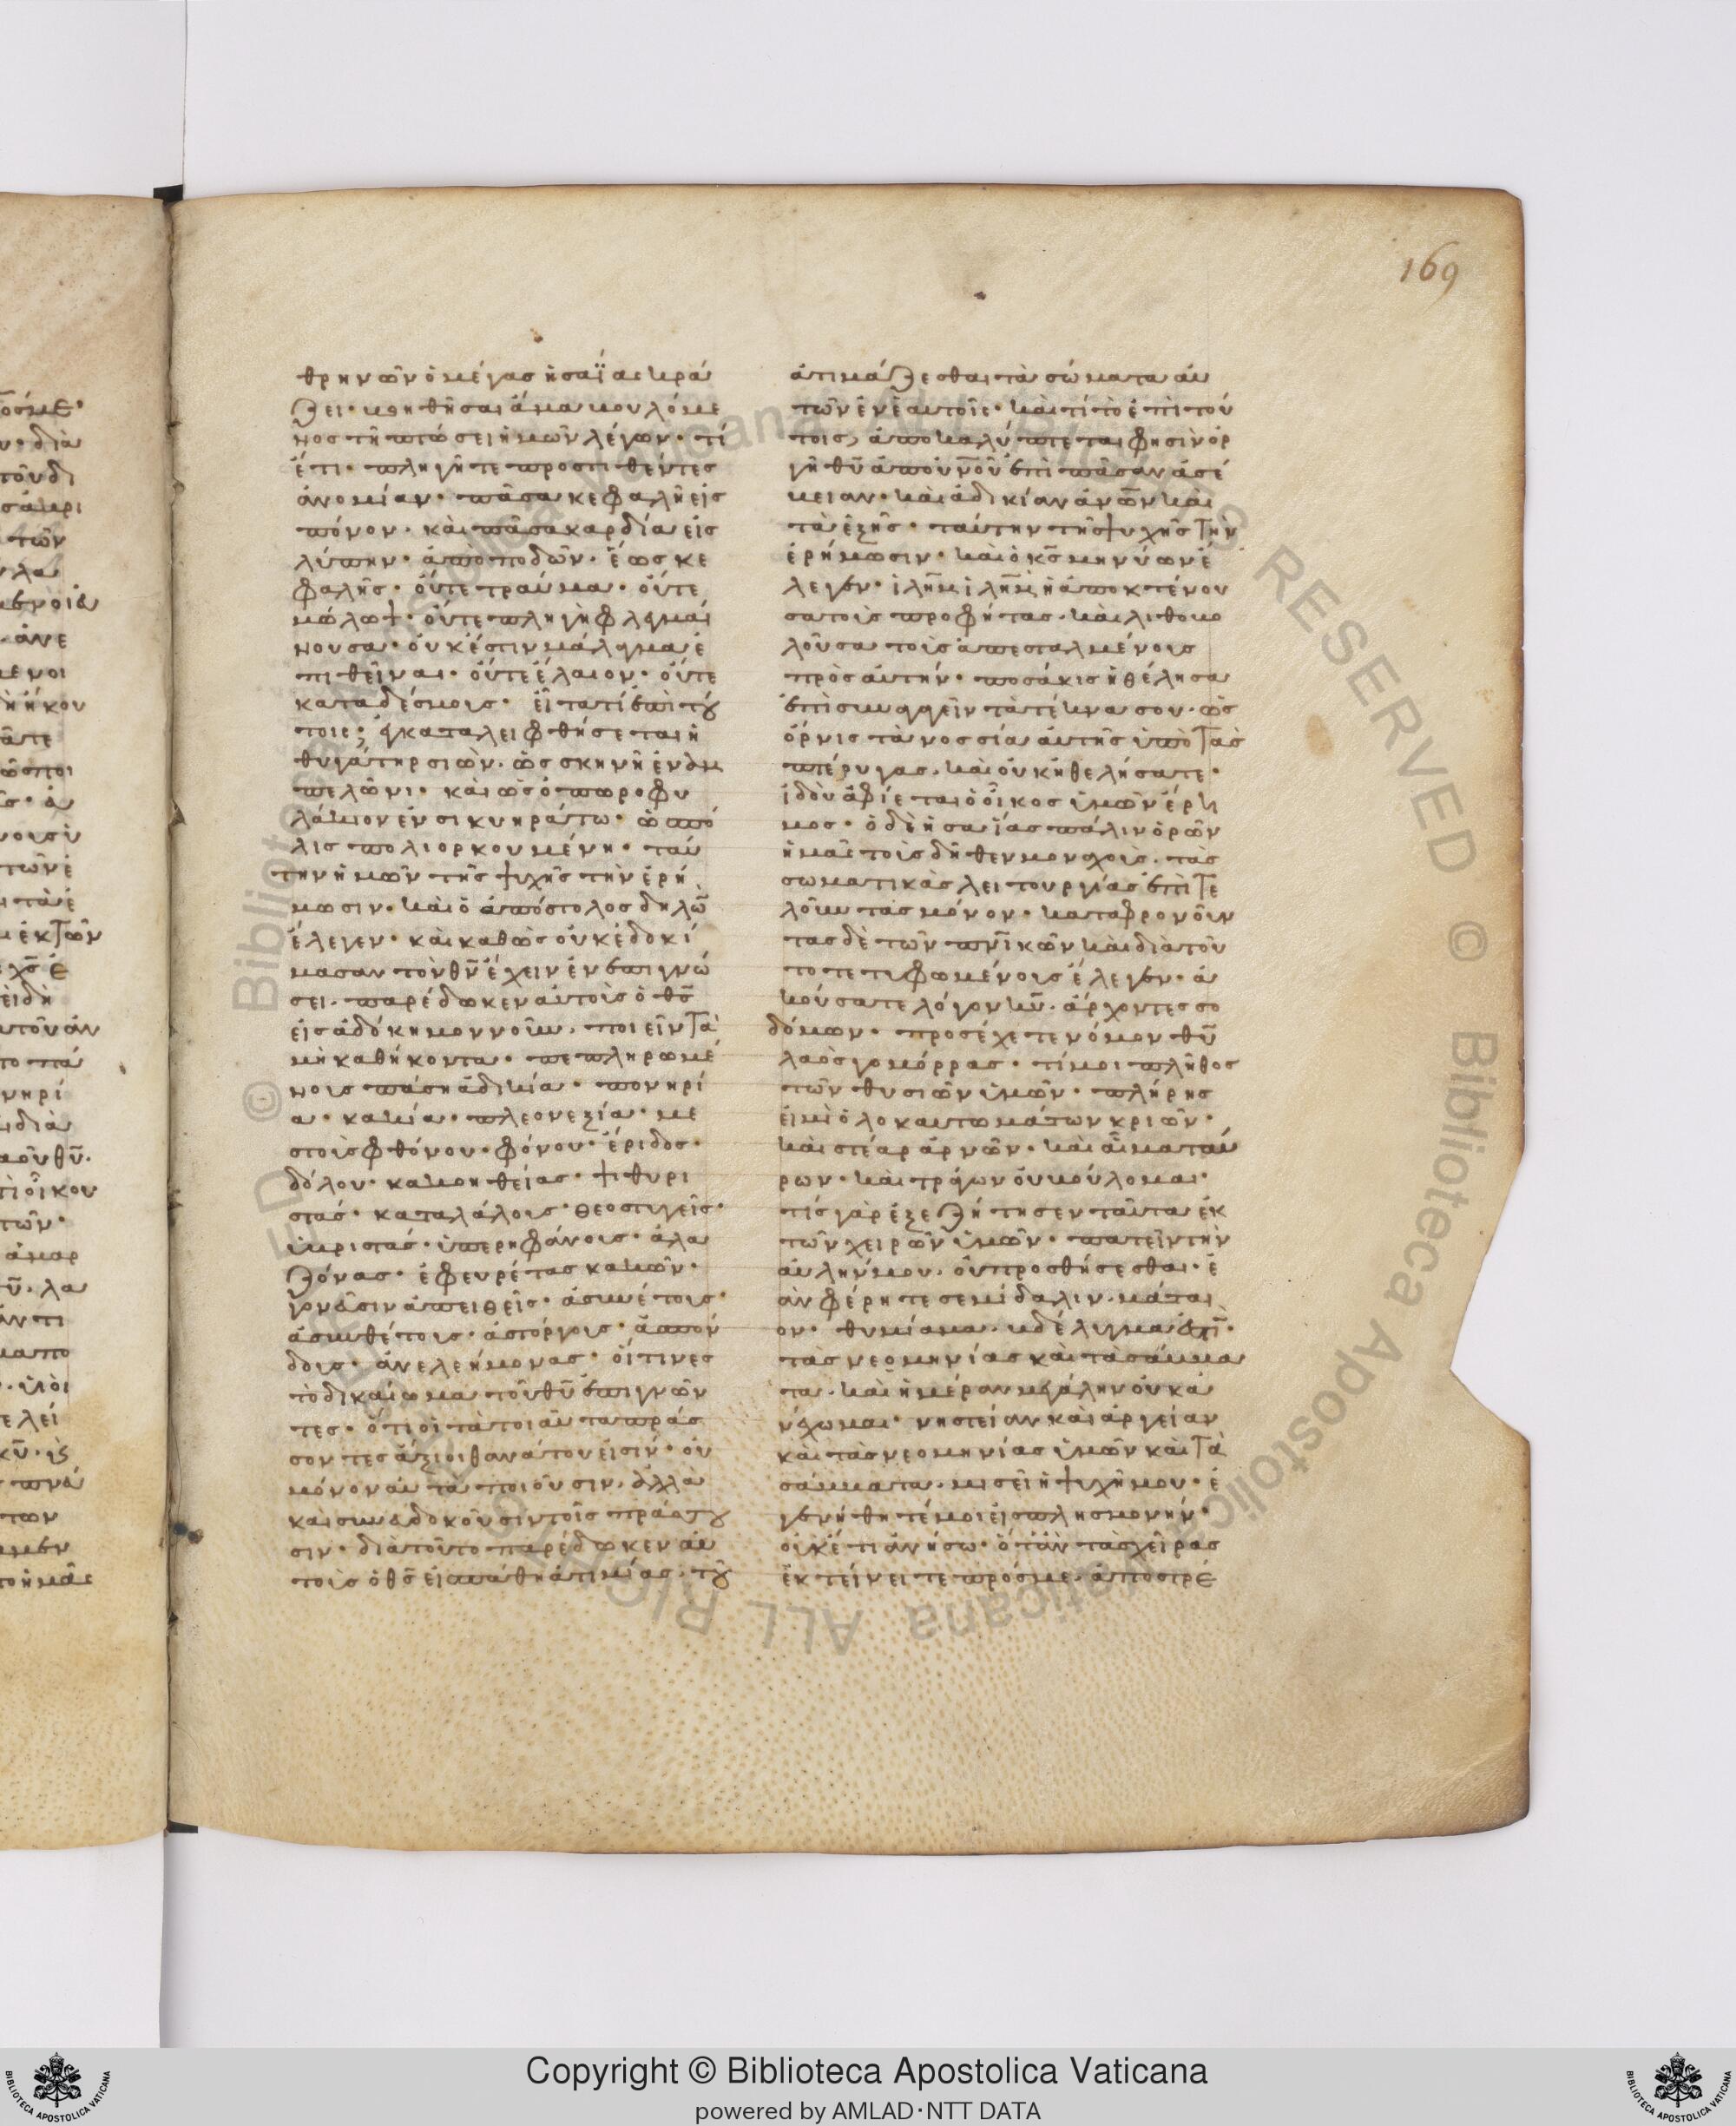 169
θρηνῶν ὁ μέγας ἡσαΐας κρά
ζει· βοηθῆσαι ἅμα βουλόμε
νος τῆ πτώσει ἡμῶν λέγων· τί
ἔτι πληγῆτε προστιθέντες
ἀνομίαν· πᾶσα κεφαλὴ εἰς
πόνον· καὶ πᾶσα καρδία εἰς
λύπην· ἀπὸ ποδῶν· ἕως κε
φαλῆς· οὔτε τραύμα· οὔτε
μώλωψ· οὔτε πληγὴ φλεγμαί
νουσα· οὐκ έστιν μάλαγμα ἐ
πιθεῖναι· οὔτε έλαιον· οὔτε
καταδέσμοις· εἶτα τί ἐπὶ τού
τοις; ἐγκαταλειφθήσεται ἡ
θυγάτηρ σιὼν· ὡς σκηνὴ ἐν ἀμ
πελῶνι· καὶ ὡς ὀπωροφυ
λάκιον ἐν σικυηράτω· ὡ πό
λις πολιορκουμένη· ταύ
την ἡμῶν τῆς ψυχῆς τὴν ἐρή
μωσιν· καὶ ὁ ἀπόστολος δηλῶ
ἔλεγεν· καὶ καθὼς οὐκ ἐδοκί
μασαν τὸν θν̄ ἔχειν ἐν επιγνώ
σει· παρέδωκεν αὐτοὶς ὁ θς̄
εἰς ἀδόκημον νοῦν· ποιεῖν τὰ
μὴ καθήκοντα· πεπληρωμέ
νοις πάση ἀδικία· πονηρί
α· κακία· πλεονεξία· με
στοὶς φθόνου· φόνου· έριδος·
δόλου· κακοηθείας· ψιθυρι
στάς· καταλάλοις· θεοστυγεῖς·
ὑβριστάς· ὑπερηφάνοις· ἀλα
ζόνας· ἐφευρέτας κακῶν·
γονεῦσιν ἀπειθεῖς· ἀσυνέτοις·
ἀσυνθέτοις· ἀστόργοις· ἀσπόν
δοις· ἀνελεήμονας· οἵτινες
τὸ δικαίωμα τοῦ θῡ επιγνῶν
τες· ὅτι οἱ τὰ τοιαῦτα πράσ
σοντες ἄξιοι θανάτου εἰσίν· οὐ
μόνον αὐτὰ ποιοῦσιν· ἀλλὰ
καὶ συνεδοκοῦσιν τοῖς πράσσου
σιν· διατοῦτο παρέδωκεν αὐ
τοὶς ὁ θς̄ εἰς πάθη ἀτιμίας· τοῦ
ἀτιμάζεσθαι τὰ σώματα αὐ
τῶν ἐν ἑαυτοῖς· καὶ τί τὸ ἐπὶ τού
τοις, ἀποκαλύπτεται φησὶν ὀρ
γὴ θῡ ἀπ οὐν̄οῦ ἐπὶ πᾶσαν ἀσέ
βειαν· καὶ ἀδικίαν ἀν̄ων καὶ
τὰ ἑξῆς· ταύτην τῆς ψυχῆς τὴν
ἐρήμωσιν· καὶ ὁ κς̄ μηνύων ἔ
λεγεν· ἱλημ̄ ἱλημ̄ ἡ ἀποκτένου
σα τοὶς προφήτας· καὶ λιθοβο
λοῦσα τοὶς ἀπεσταλμένοις
πρὸς αὐτήν· ποσάκις ἠθέλησα
ἐπισυναγαγεῖν τὰ τέκνα σου· ὡς
όρνις τὰ νοσσία αὐτῆς ὑπὸ τὰς
πτέρυγας· καὶ οὐκ ἠθελήσατε·
ἰδοὺ ἀφίεται ὁ οἶκος ὑμῶν έρη
μος· ὁ δὲ ἡσαΐας πάλιν ὁρῶν
ἡμᾶς τοὶς δῆθεν μοναχοὶς· τὰς
σωματικὰς λειτουργίας ἐπιτε
λοῦντας μόνον· καταφρονοῦν
τας δὲ τῶν πνῑκῶν καὶ διὰ τοῦ
το τετιφωμένοις ἔλεγεν· ἀ
κούσατε λόγον κῡ· ἄρχοντες σο
δόμων· προσέχετε νόμον θῡ
λαὸς γομόρρας· τί μοι πλῆθος
τῶν θυσιῶν ὑμῶν· πλήρης
εἰμὶ ὁλοκαυτωμάτων κριῶν·
καὶ στέαρ ἀρνῶν· καὶ αἷμα ταύ
ρων· καὶ τράγων οὐ βούλομαι·
τίς γὰρ ἐξεζήτησεν ταῦτα ἐκ
τῶν χειρῶν ὑμῶν· πατεῖν τὴν
αὐλήν μου· οὐ προσθήσεσθαι· ἐ
ὰν φέρητε σεμίδαλιν· μάται
ον· θυμίαμα· βδέλυγμα
τὰς νεομηνίας καὶ τὰ σάββα
τα· καὶ ἡμέραν μεγάλην οὐκ ἀ
νέχωμαι· νηστείαν καὶ ἀργείαν
καὶ τὰς νεομηνίας ὑμῶν καὶ τὰ
σάββατα· μισεῖ ἡ ψυχή μου· ἐ
γενήθητέ μοι εἰς πλησμονήν·
οὐκέτι ἀνήσω· ὅτἂν τὰς χεῖρας
ἐκτείνειτε πρός με· ἀποστρέ
Copyright © Biblioteca Apostolica Vaticana
powered by AMLAD·NTT DATA